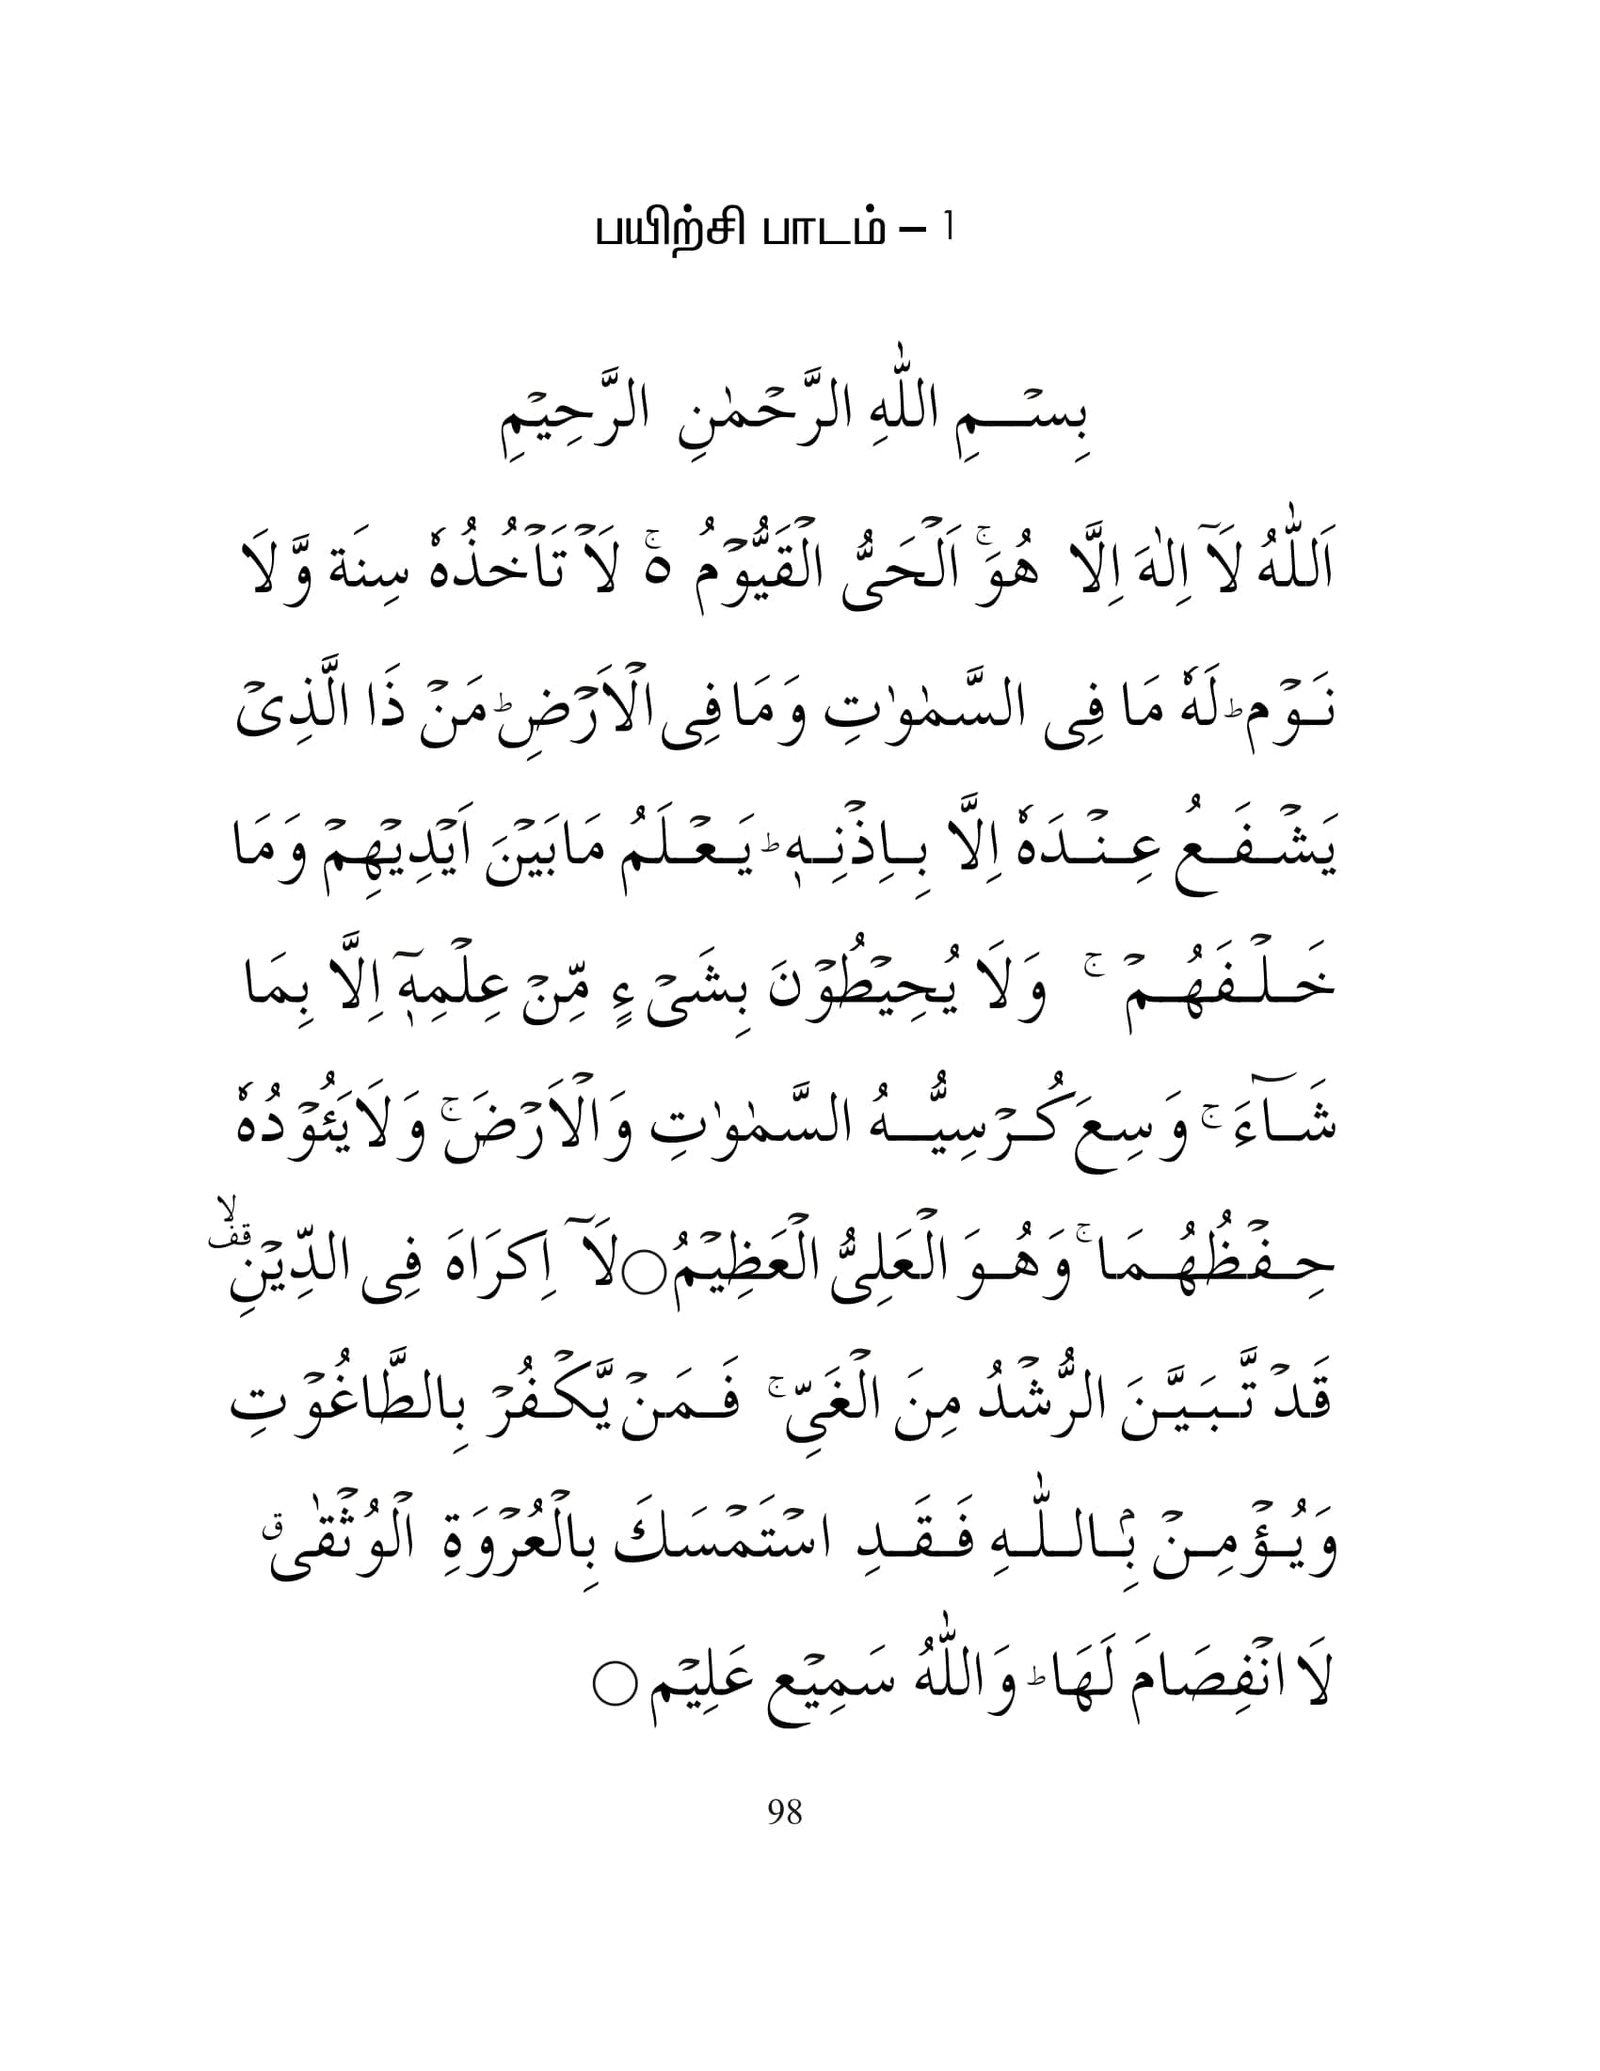 பயிற்சி பாடம் – 1
بِسۡـــمِ اللّٰهِ الرَّحۡمٰنِ الرَّحِيۡمِ
اَللّٰهُ لَآ اِلٰهَ اِلَّا هُوَ ۚ اَلۡحَىُّ الۡقَيُّوۡمُ ە ۚ لَاۡ تَاۡخُذُهٗ سِنَة وَّلَا
نَـوۡم ؕ لَهٗ مَا فِى السَّمٰوٰتِ وَمَا فِى الۡاَرۡضِ ؕ مَنۡ ذَا الَّذِىۡ
يَشۡـفَـعُ عِـنۡـدَهٗ اِلَّا بِـاِذۡنِـهٖ ؕ يَـعۡـلَمُ مَابَيۡنَ اَيۡدِيۡهِمۡ وَمَا
خَـلۡـفَهُـمۡ ۚ وَلَا يُحِيۡطُوۡنَ بِشَىۡءٍ مِّنۡ عِلۡمِهٖۤ اِلَّا بِمَا
شَـآءَ ۚ وَسِعَ كُـرۡسِيُّـــهُ السَّمٰوٰتِ وَالۡاَرۡضَ ۚ وَلَا يَئُوۡدُهٗ
حِـفۡظُهُـمَا ۚ وَهُـوَ الۡعَلِىُّ الۡعَظِيۡمُ ○ لَآ اِكرَاهَ فِى الدِّيۡنِ ۙ قف
قَدۡ تَّـبَـيَّـنَ الرُّشۡدُ مِنَ الۡغَىِّ ۚ فَـمَنۡ يَّكۡفُرۡ بِالطَّاغُوۡتِ
وَيُـؤۡمِـنۡۢ بِـالـلّٰـهِ فَـقَـدِ اسۡتَمۡسَكَ بِالۡعُرۡوَةِ الۡوُثۡقٰى ق
لَا انۡفِصَامَ لَهَا ؕ وَاللّٰهُ سَمِيۡع عَلِيۡم ○
98